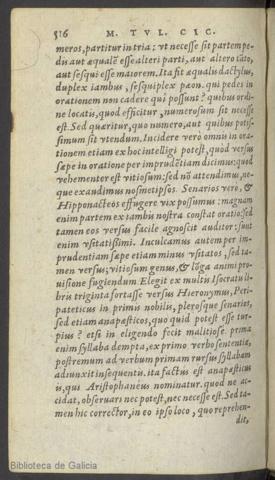 516 M. TVL. CIC.
meros, partitur in tria; vt necesse sit partem pe-
dis aut æqualẽ esse alteri parti, aut altero tãto,
aut sesqui esse maiorem. Ita fit æqualis dactylus,
duplex iambus, sesquiplex pæon. qui pedes in
orationem non cadere qui possunt? quibus ordi-
ne locatis, quod efficitur, numerosum sit necesse
est. Sed quæritur, quo numero, aut quibus potis-
simum sit vtendum. Incidere verò omnis in ora-
tionem etiam ex hoc intelligi potest, quod versus
sæpe in oratione per imprudẽtiam dicimus: quod
vehementer est vitiosum: sed nõ attendimus, ne-
que exaudimus nosmetipsos. Senarios vero, &
Hipponacteos effugere vix possumus: magnam
enim partem ex iambis nostra constat oratio: sed
tamen eos versus facile agnoscit auditor: sunt
enim vsitatissimi. Inculcamus autem per im-
prudentiam sæpe etiam minus vsitatos, sed ta-
men versus; vitiosum genus, & lõga animi pro-
uisione fugiendum Elegit ex multis Isocratis li-
bris triginta fortasse versus Hieronymus, Peri-
pateticus in primis nobilis, plerosque senarios,
sed etiam anapæsticos, quo quid potest esse tur-
pius? etsi in eligendo fecit malitiose. prima
enim syllaba dempta, ex primo verbo sententiæ,
postremum ad verbum primam rursus syllabam
adiunxit insequentis. ita factus est anapæsticus
is, qui Aristophanêus nominatur. quod ne ac-
cidat, obseruari nec potest, nec necesse est. Sed ta-
men hic corrector, in eo ipso loco, quo reprehen-
dit,
Biblioteca de Galicia